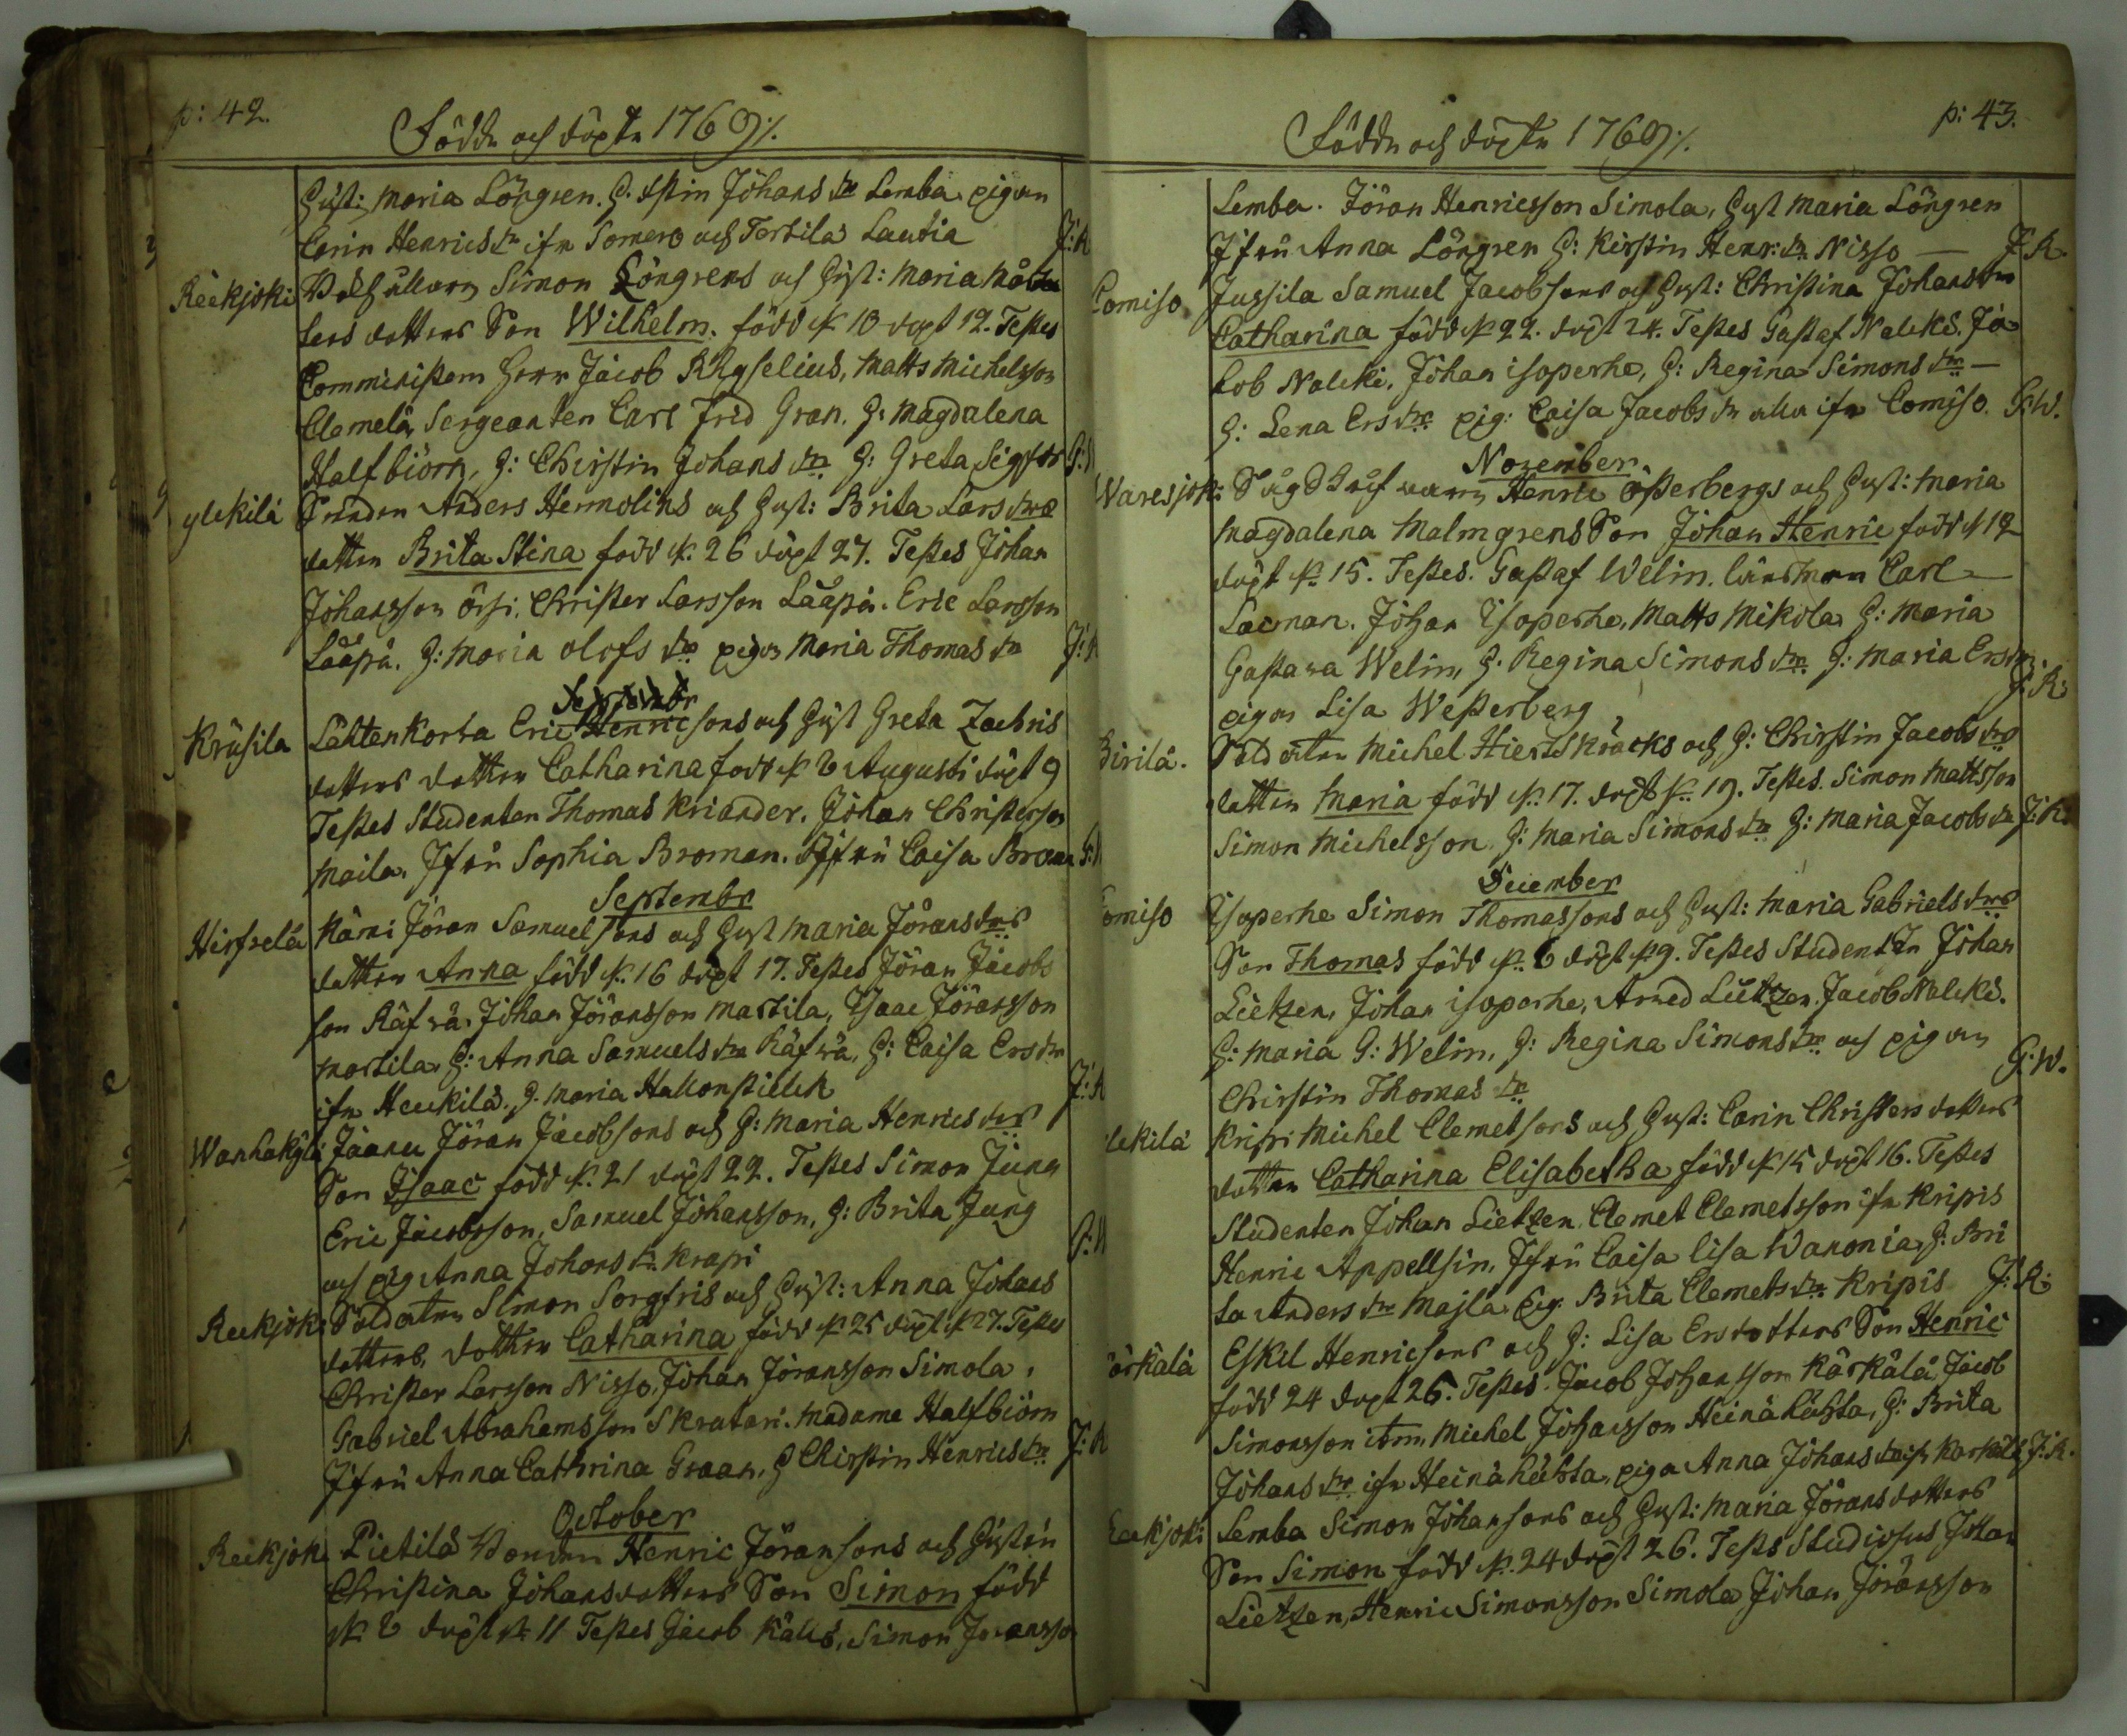 p: 42.
Födde och döpte 1769 ∕.
Hust: Maria Löngren. H. Stin Johans dr Lemba. pigan
Carin Henrics dr ifr Somero och Tertila Lautia J: R
Reekjoki Simon Löngrens och Hust: Maria Mat
ters dotters Son Wilhelm. född d. 10 döpt 12. Testes
Comministern Herr Jacob Rhyselius, Matts Michelsson
Clemelä, Sergeanten Carl Frid Gran. H: Magdalena
Halfbiörn, H: Christin Johans dr H: Greta Sigfr
ylikilä Anders Hermolins och Hust: Brita Lars drs
dotter Brita Stina född d. 26 döpt 27. Testes Johan
Johansson Örsi. Christer Larsson Lääpä. Eric Larsson
Lääpä. H: Maria Olofs dr pigan Maria Thomas dr J: R
Septembr
Krusila Lähtenkorva Eric Henricsons och Hust Greta Zachris
dotters dotter Catharina född d 6 Augusti döpt 9
Testes Studenten Thomas Kriander. Johan Christersson
Maila. Jfru Sophia Broman. Jfru Caisa Broman
Septembr
Hirsselä Kärni Jöran Samuelsons och Hust Maria Jörans drs
dotter Anna född d. 16 döpt 17. Testes Jöran Jacobs
son Räfvä. Johan Jöransson Martila, Isaac Jöransson
Martila. H: Anna Samuels dr Räfvä, H: Caisa Ers dr
ifr Heickilä. H. Maria J: R
Wanhakylä Jaanu Jöran Jacobsons och H: Maria Henrics drs
Son Isaac född d. 21 döpt 22. Testes Simon Jung
Eric Jacobsson, Samuel Johansson, H: Brita Jung
och pig Anna Johans dr Krapi
Reekjoki Soldaten Simon Sorgfris och Hust: Anna Johans
dotters, dotter Catharina född d 25 döpt d 27. Testes
Christer Larsson Nisso, Johan Jöransson Simola,
Gabriel Abrahamsson Skratari. Madame Halfbiörn
Jfru Anna Cathrina Graan, H Christin Henrics dr J: R
October
Reekjoki Pietilä Bonden Henric Jöransons och Hustrun
Christina Johansdotters Son Simon född
d. 6 döpt d. 11 Testes Jacob Källi, Simon Joransson
p: 43.
Födde och döpte 1769 ∕.
Lemba. Jöran Henricsson Simola, Hust Maria Löngren
Jfru Anna Löngren H: Kirstin Henr: dr Nisso — J: R.
Somiso Jussila Samuel Jacobsons och Hust: Christina Johans drs
Catharina född d. 22. döpt 24. Testes Gustaf Nalcki. Ja
cob Nalcki. Johan isoperhe, H: Regina Simons dr —
H: Lena Ers dr pig: Caisa Jacobs dr alla ifr Somiso. G: W.
November
Waresjok: Henric Österbergs och Hust: Maria
Magdalena Malmgrens Son Johan Henric född d 12
döpt d. 15. Testes. Gustaf Welin. länsman Carl
Lacman. Johan Isoperhe, Matts Mikola H: Maria
Gustava Welin, H. Regina Simons dr. H: Maria Ers dr
pigan Lisa Westerberg J: R:
Pirilä. Soldaten Michel och H: Christin Jacobs drs
dotter Maria född d. 17. döpt d. 19. Testes. Simon Mattsson
Simon Michelsson. H: Maria Simons dr H: Maria Jacobs dr J: R.
December
Somiso Isoperhe Simon Thomassons och Hust: Maria Gabriels drs
Son Thomas född d. 6 döpt d. 9. Testes Studenten Johan
Lietzen, Johan isoperhe, Arved Lietzen. Jacob Nalcki.
H: Maria G: Welin, H: Regina Simons dr och pigan
Christin Thomas dr G: W.
ylikilä Kripi Michel Clemetsons och Hust: Carin Christers dotters
dotter Catharina Elisabetha född d. 15 döpt 16. Testes
Studenten Johan Lietzen. Clemet Clemetsson ifr Kripis
Henric Appellsin, Jfru Caisa Lisa Wanonia, H: Bri
ta Anders dr Majla. Pig. Brita Clemets dr Kripis J: R:
Kärkälä Eskil Henricsons och H: Lisa Ersdotters Son Henric
född 24 döpt 26. Testes. Jacob Johansson Kärkälä Jacob
Simonsson Michel Johansson Heinähuhta, H: Brita
Johans dr ifr Heinähuhta, piga Anna Johans dr ifr Karkälä J: R.
Reekjoki Lemba Simon Johansons och Hust: Maria Jörans dotters
Son Simon född d. 24 döpt 26. Testes Studiosus Johan
Lietzen, Henric Simonsson Simola Johan Jöransson